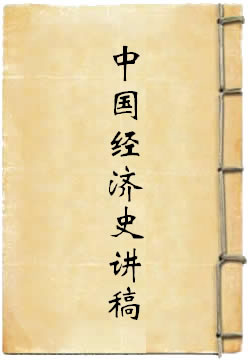 中国经济史讲稿